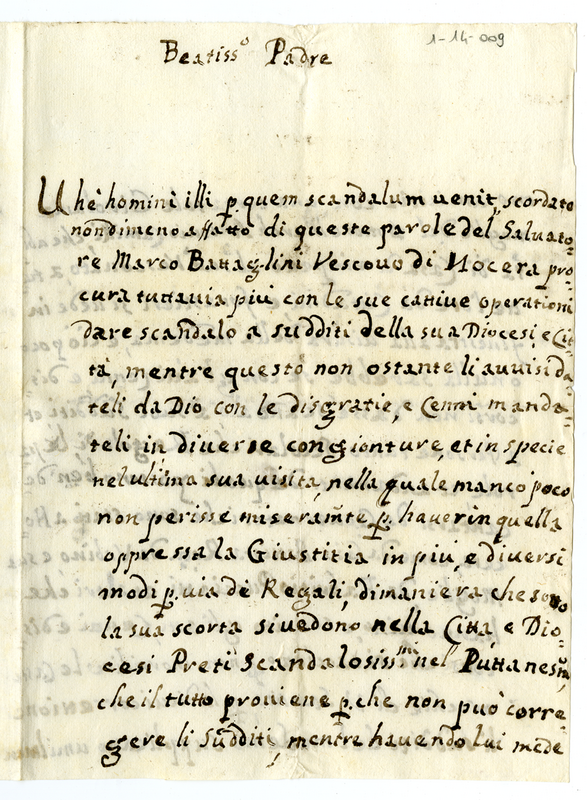 1-14-009
Beatiss.º Padre
Uhè homini illi p quem scandalum uenit, scordato
nondimeno affatto di queste parole del Saluato=
re Marco Battaglini Vescouo di Nocera pro=
cura tuttauia più con le sue cattiue operationi
dare scandalo a sudditi della sua Diocesi, e Cit=
tà, mentre questo non ostante li auuisi da=
teli da Dio con le disgratie, e Cenni manda=
teli in diuerse congionture, et in specie
nel ultima sua uisita, nella quale mancò poco
non perisse miseramte p. hauer in quella
oppressa la Giustitia in più, e diuersi
modi p. uia dè Regali, dimaniera che sotto
la sua scorta si uedono nella Città, e Dio=
cesi Preti Scandalosissmi nel Puttanesmo,
che il tutto prouiene p. che non può corre
gere li Sudditi, mentre hauendo lui mede